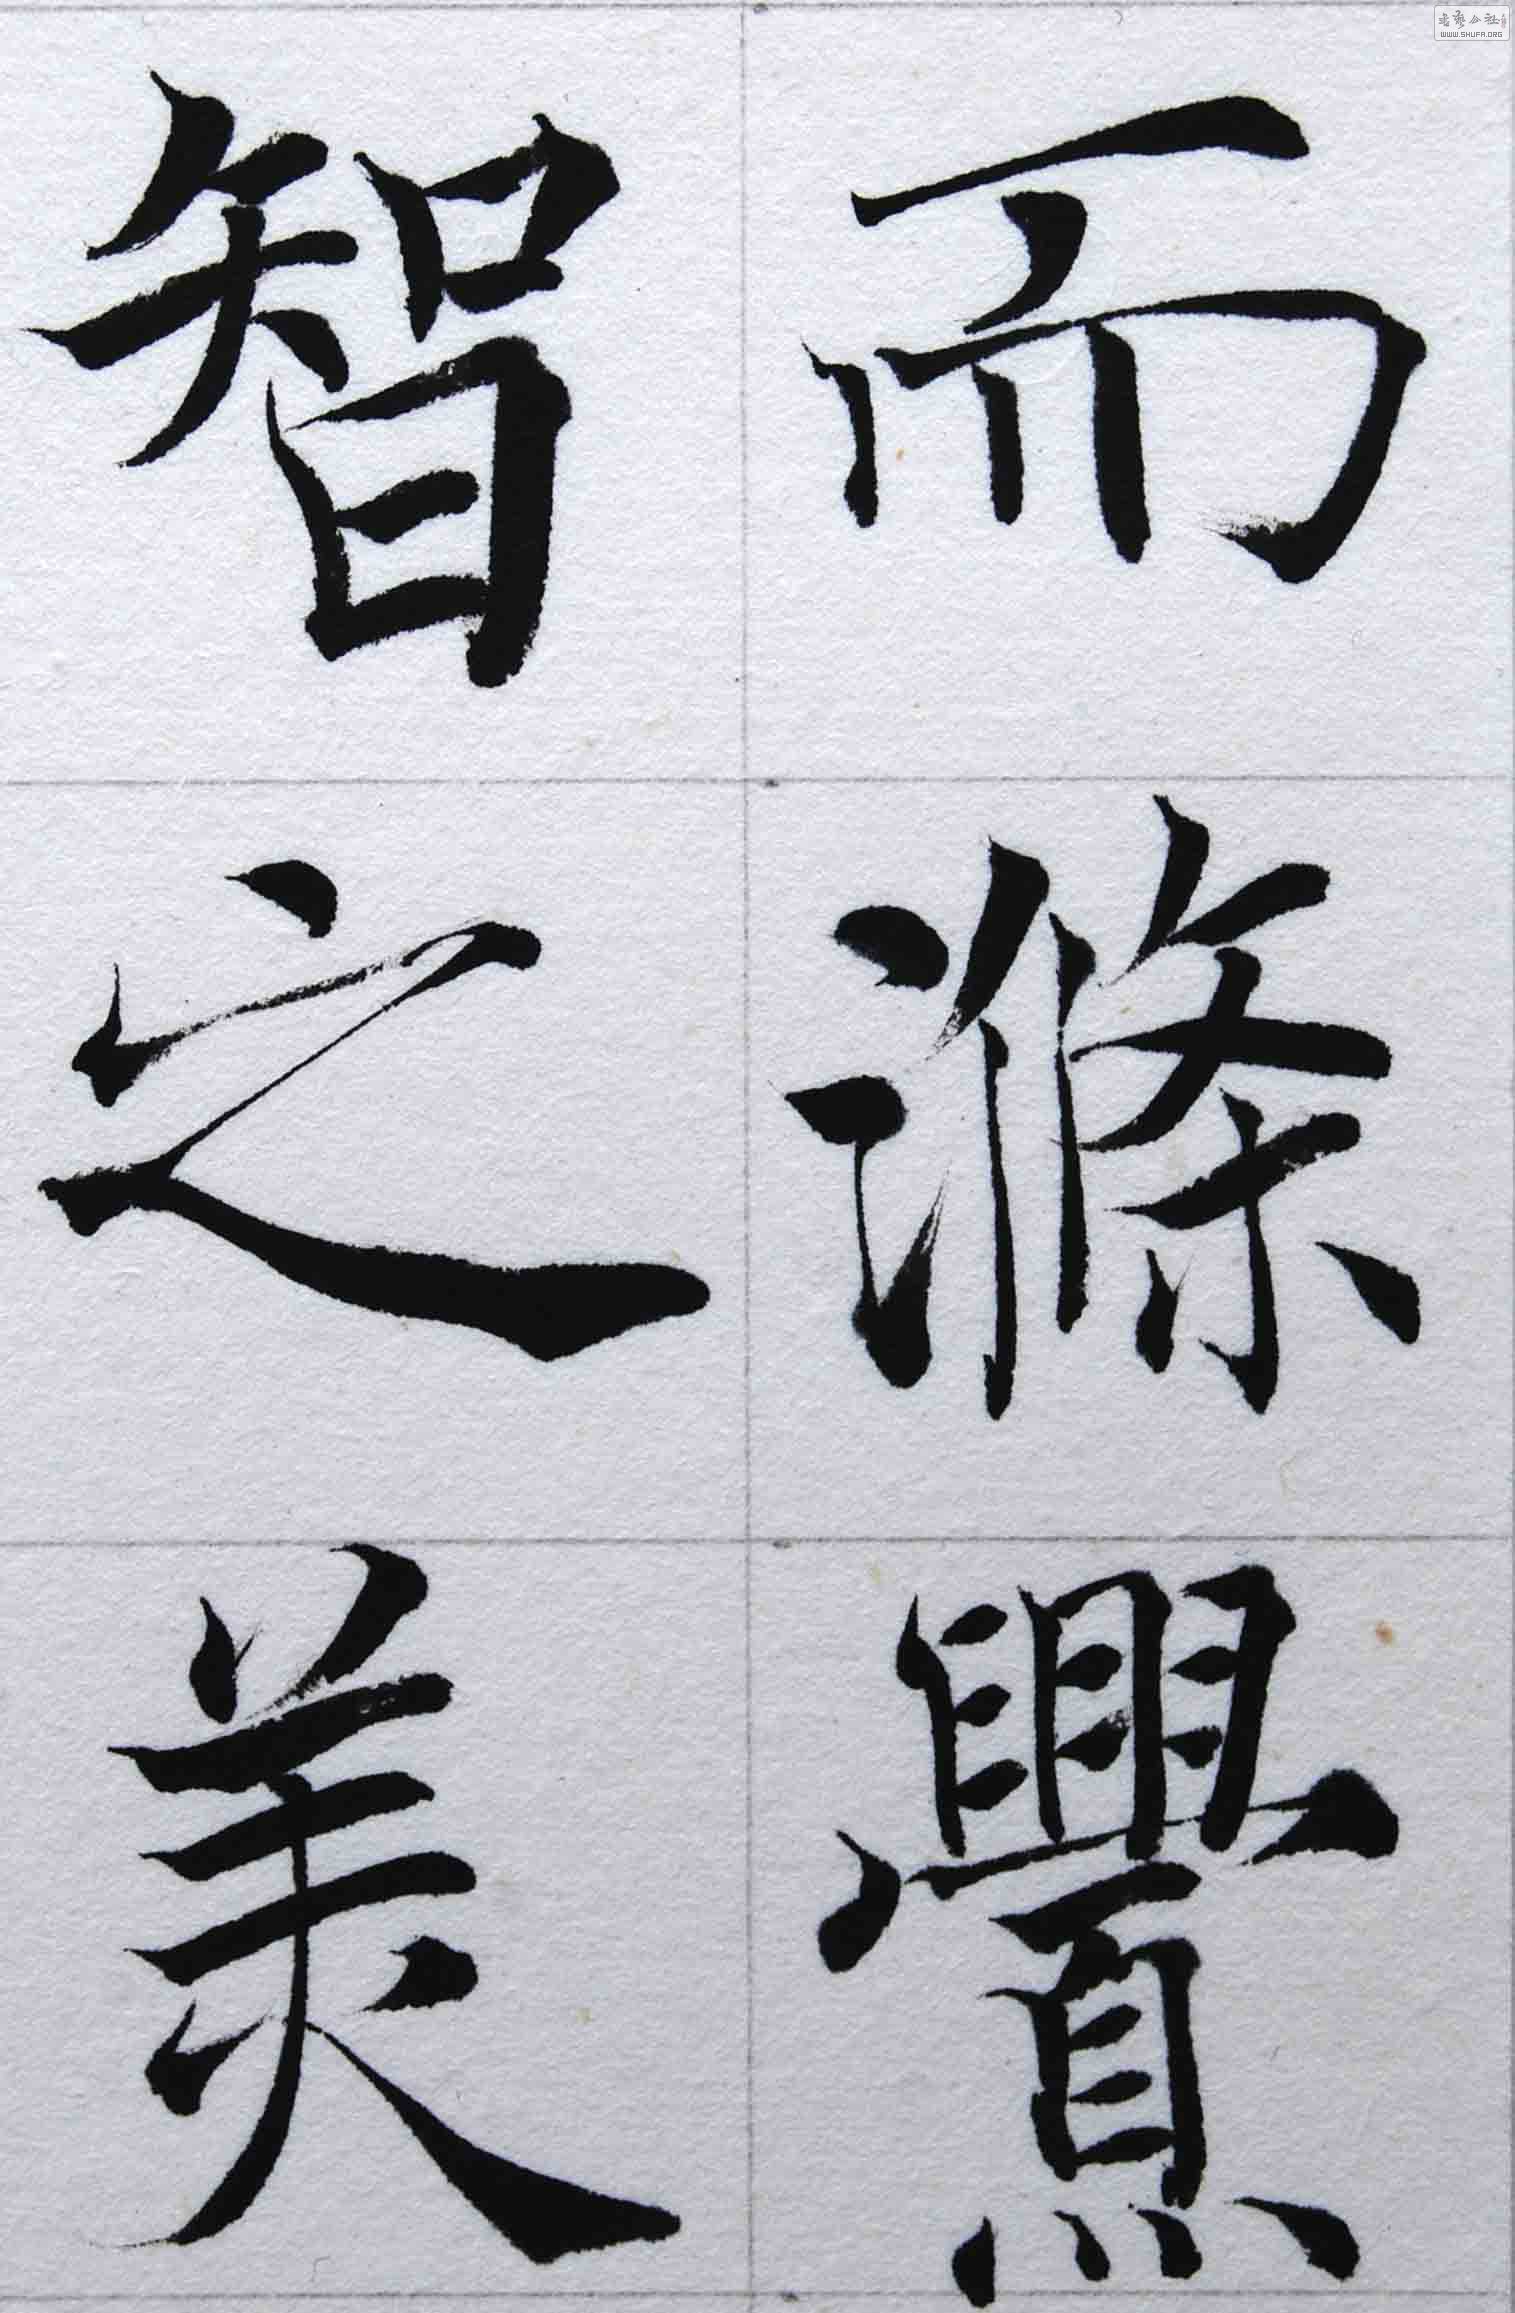 而滌
智之美
书艺公社
WWW.SHUFA.ORG